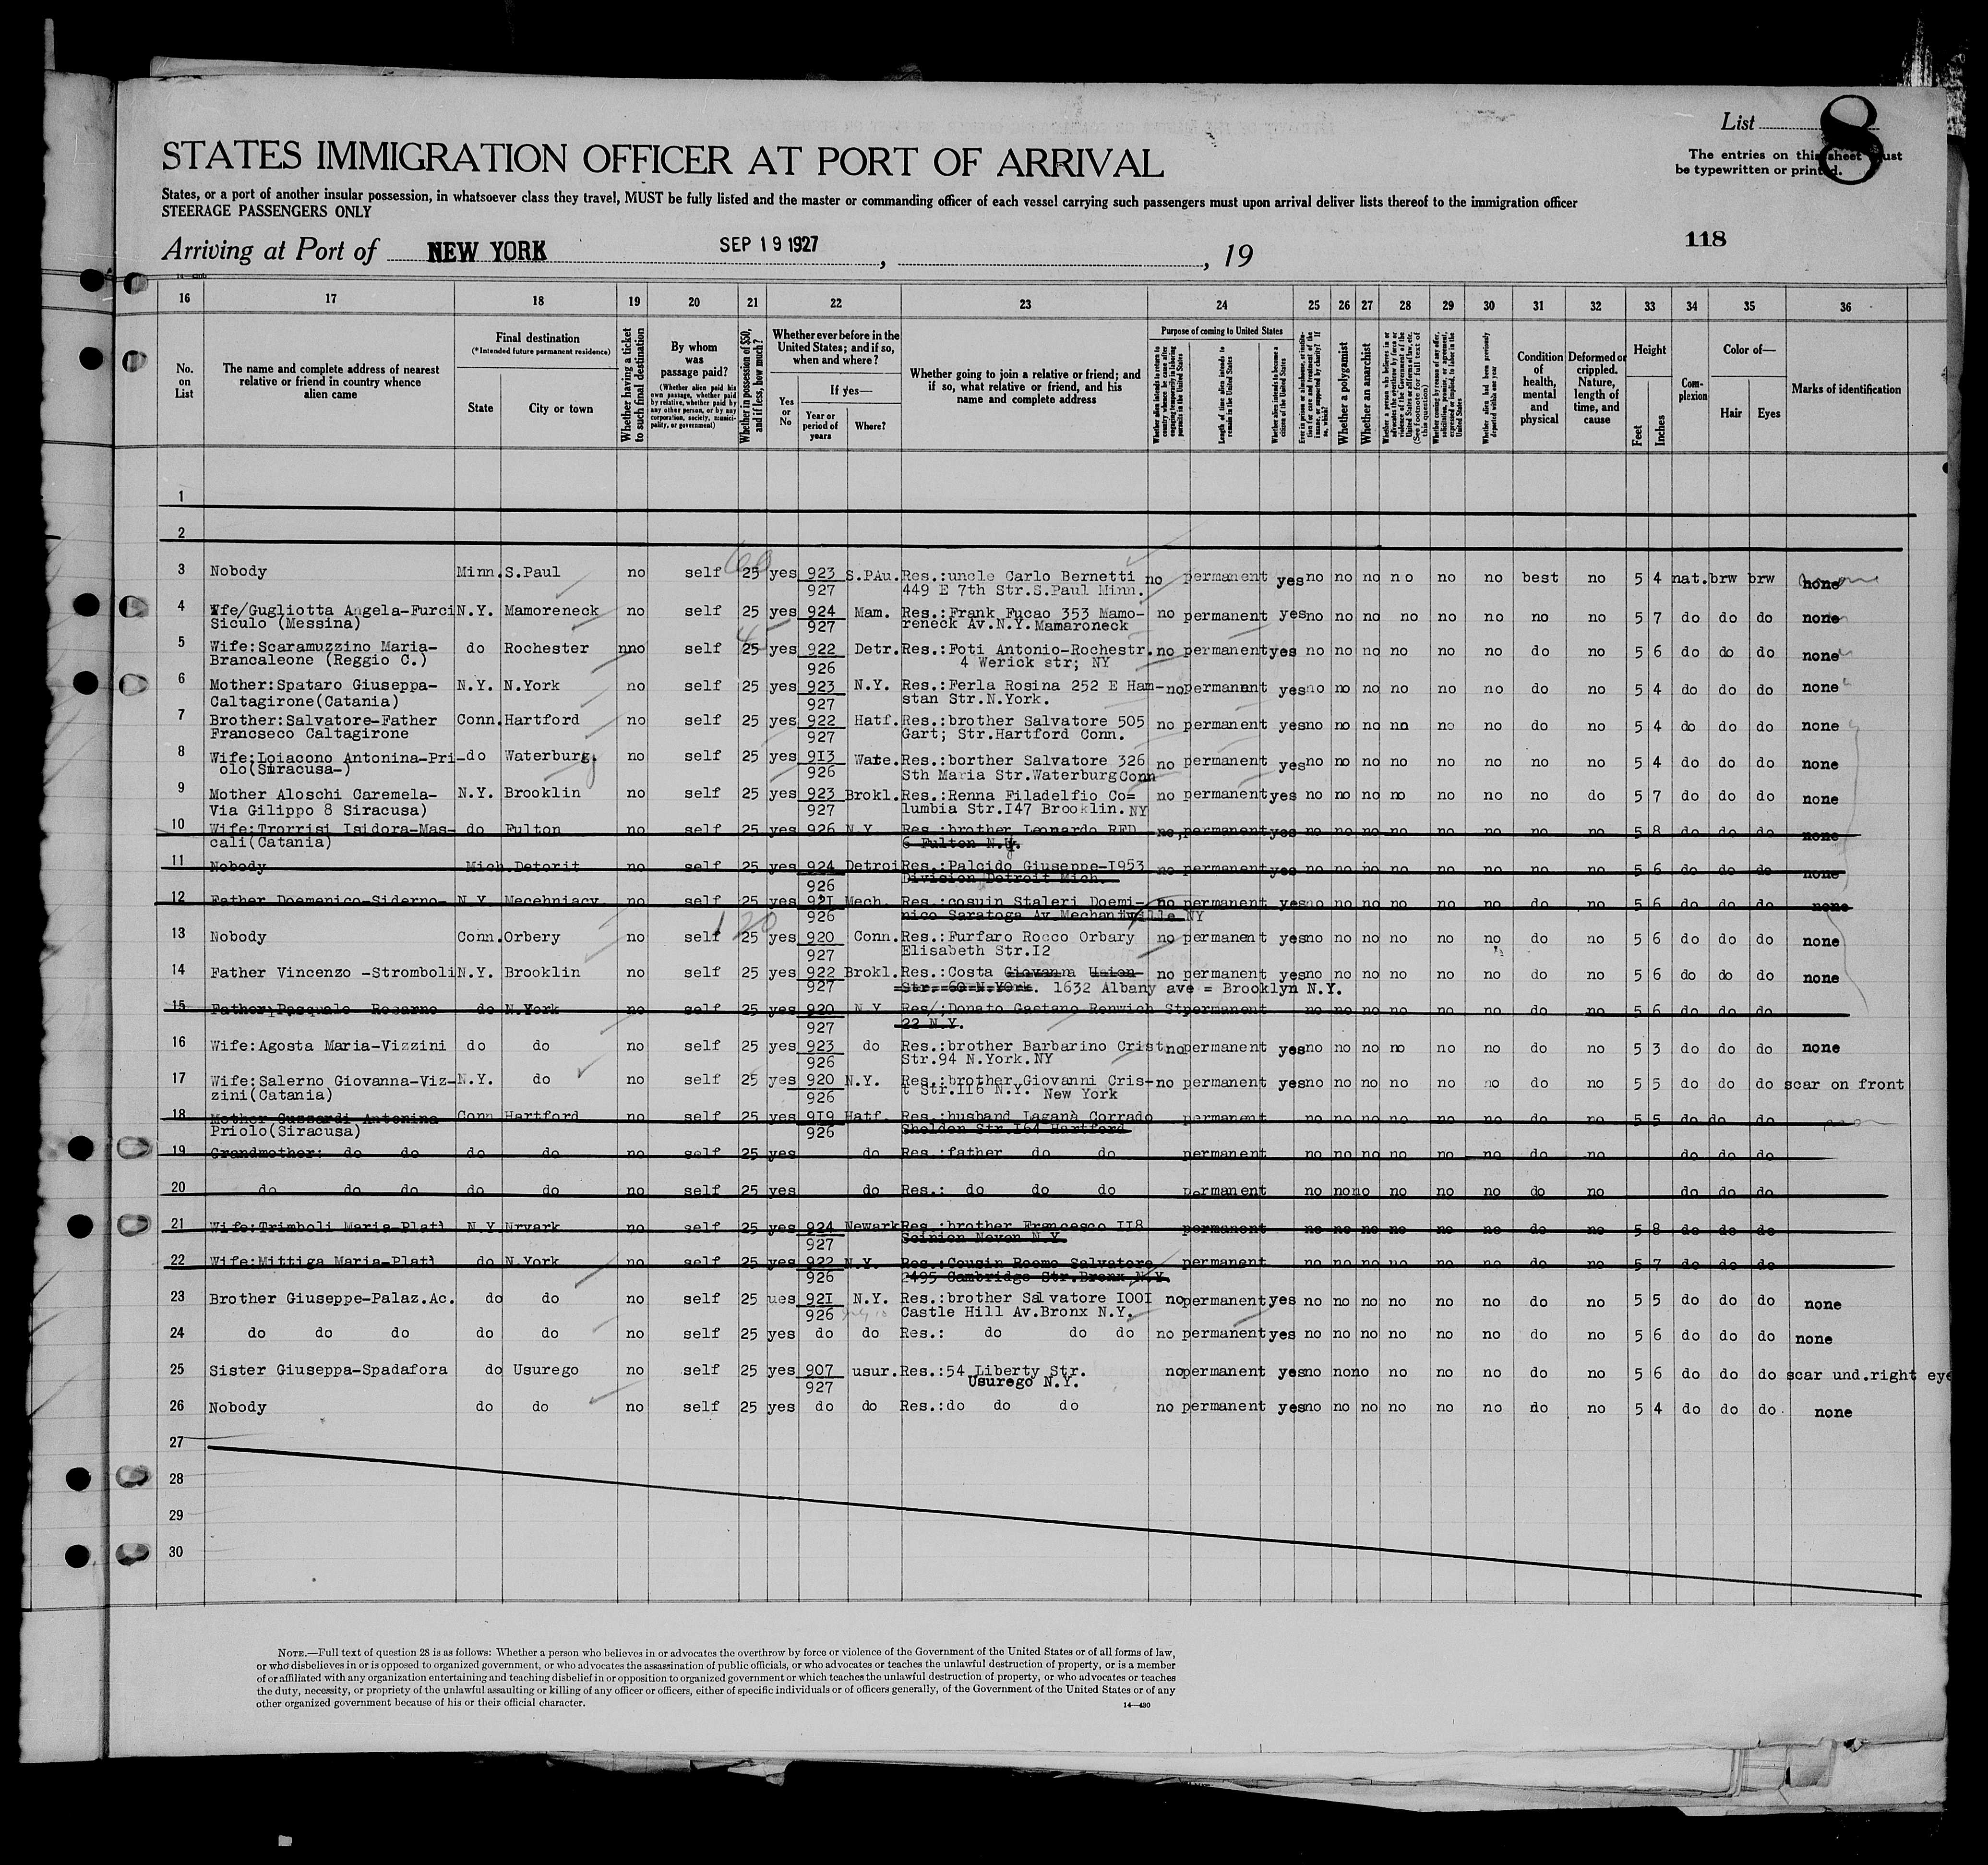 List
8
The entries on this sheet must
be typewritten or printed.
STATES IMMIGRATION OFFICER AT PORT OF ARRIVAL
States, or a port of another insular possession, in whatsoever class they travel, MUST be fully listed and the master or commanding officer of each vessel carrying such passengers must upon arrival deliver lists thereof to the immigration officer
STEERAGE PASSENGERS ONLY
Arriving at Port of NEW YORK SEP 19 1927, , 19
118
16 17 18 19 20 21 22 23 24 25 26 27 28 29 30 31 32 33 34 35 36
No. on List
The name and complete address of nearest relative or friend in country whence alien came
Final destination
(*Intended future permanent residence)
State
City or town
Whether having a ticket to such final destination
By whom was passage paid?
(Whether alien paid his own passage, whether paid by relative, whether paid by any other person, or by any corporation, society, municipality, or government)
Whether in possession of $50, and if less, how much?
Whether ever before in the United States; and if so, when and where?
Yes or No
If yes—
Year or period of years
Where?
Whether going to join a relative or friend; and if so, what relative or friend, and his name and complete address
Purpose of coming to United States
Length of time alien intends to remain in the United States
Whether alien intends to become a citizen of the United States
Whether a polygamist
Whether an anarchist
Condition of health, mental and physical
Deformed or crippled. Nature, length of time, and cause
Height
Feet
Inches
Complexion
Color of—
Hair
Eyes
Marks of identification
1
2
3 Nobody Minn. S.Paul no self 25 yes 923 S.PAu. Res.:uncle Carlo Bernetti no permanent yes no no no no no no best no 5 4 nat. brw brw none
927 449 E 7th Str.S.Paul Minn.
4 Wfe/Gugliotta Angela-Furci N.Y. Mamoreneck no self 25 yes 924 Mam. Res.:Frank Fucao 353 Mamo- no permanent yes no no no no no no no no 5 7 do do do none
Siculo (Messina) 927 reneck Av.N.Y. Mamaroneck
5 Wife:Scaramuzzino Maria- do Rochester nno self 25 yes 922 Detr. Res.:Foti Antonio-Rochestr. no permanent yes no no no no no no do no 5 6 do do do none
Brancaleone (Reggio C.) 926 4 Werick str; NY
6 Mother:Spataro Giuseppa- N.Y. N.York no self 25 yes 923 N.Y. Res.:Ferla Rosina 252 E Ham- no permannt yes no no no no no no do no 5 4 do do do none
Caltagirone(Catania) 927 stan Str.N.York.
7 Brother:Salvatore-Father Conn. Hartford no self 25 yes 922 Hatf. Res.:brother Salvatore 505 no permanent yes no no no nn no no do no 5 4 do do do none
Francseco Caltagirone 927 Gart; Str.Hartford Conn.
8 Wife:Loiacono Antonina-Pri- do Waterburg. no self 25 yes 9I3 Wate. Res.:borther Salvatore 326 no permanent yes no no no no no no no no 5 4 do do do none
olo(Siracusa-) 926 Sth Maria Str.Waterburg Conn
9 Mother Aloschi Caremela- N.Y. Brooklin no self 25 yes 923 Brokl. Res.:Renna Filadelfio Co= no permanent yes no no no no no no no do 5 7 do do do none
Via Gilippo 8 Siracusa) 927 lumbia Str.I47 Brooklin. NY
10 Wife:Trorrisi Isidora-Mas- do Fulton no self 25 yes 926 N.Y. Res.:brother Leonardo RFD no,permanent yes no no no no no no no no 5 8 do do do none
cali(Catania) 6 Fulton N.Y.
11 Nobody Mich. Detorit no self 25 yes 924 Detroi Res.:Palcido Giuseppe-I953 no permanent yes no no no no no no no no 5 6 do do do none
926 Division Detroit Mich.
12 Father Doemenico-Siderno- N.Y. Mecehniacv. no self 25 yes 92I Mech. Res.:cosuin Staleri Doemi- no permanent yes no no no no no no do no 5 6 do do do none
926 nico Saratoga Av.Mechanikville NY
13 Nobody Conn. Orbery no self 25 yes 920 Conn. Res.:Furfaro Rocco Orbary no permanent yes no no no no no no do no 5 6 do do do none
927 Elisabeth Str.I2
14 Father Vincenzo -Stromboli N.Y. Brooklin no self 25 yes 922 Brokl. Res.:Costa Giovanna Union no permanent yes no no no no no no do no 5 6 do do do none
927 Str. 60 N.YOrk. 1632 Albany ave = Brooklyn N.Y.
15 Father;Pasquale- Rosarno do N.York no self 25 yes 920 N.Y. Res/;Donato Gaetano Renwich St permanent no no no no no no do no 5 6 do do do
927 22 N.Y.
16 Wife:Agosta Maria-Vizzini do do no self 25 yes 923 do Res.:brother Barbarino Crist no permanent yes no no no no no no do no 5 3 do do do none
926 Str.94 N.York.NY
17 Wife:Salerno Giovanna-Viz- N.Y. do no self 25 yes 920 N.Y. Res.:brother Giovanni Cris- no permanent yes no no no no no no do no 5 5 do do do scar on front
zini(Catania) 926 t Str.II6 N.Y. New York
18 Mother Guzzardi Antonina Conn. Hartford no self 25 yes 9I9 Hatf. Res.:husband Laganà Corrado permanent no no no no no no do no 5 5 do do do
Priolo(Siracusa) 926 Sheldon Str.I64 Hartford
19 Grandmother: do do do do no self 25 yes do Res.:father do do permanent no no no no no no do no do do do
20 do do do do do no self 25 yes do Res.: do do do permanent no no no no no no do no do do do
21 Wife:Trimboli Maria-Platì N.Y. Nrvark no self 25 yes 924 Newark Res.:brother Francesco II8 permanent no no no no no no do no 5 8 do do do
927 N.Y.
22 Wife:Mittiga Maria-Platì do N.York no self 25 yes 922 N.Y. Res.:Cousin Roemo Salvatore permanent no no no no no no do no 5 7 do do do
926 2495 Cambridge Str.Bronx N.Y.
23 Brother Giuseppe-Palaz.Ac. do do no self 25 ues 92I N.Y. Res.:brother Salvatore I00I no permanent yes no no no no no no do no 5 5 do do do none
926 Castle Hill Av.Bronx N.Y.
24 do do do do do no self 25 yes do do Res.: do do do no permanent yes no no no no no no do no 5 6 do do do none
25 Sister Giuseppa-Spadafora do Usurego no self 25 yes 907 usur. Res.:54 Liberty Str. no permanent yes no no no no no no do no 5 6 do do do scar und.right eye
927 Usurego N.Y.
26 Nobody do do no self 25 yes do do Res.:do do do no permanent yes no no no no no no do no 5 4 do do do none
27
28
29
30
NOTE.—Full text of question 28 is as follows: Whether a person who believes in or advocates the overthrow by force or violence of the Government of the United States or of all forms of law,
or who disbelieves in or is opposed to organized government, or who advocates the assassination of public officials, or who advocates or teaches the unlawful destruction of property, or is a member
of or affiliated with any organization entertaining and teaching disbelief in or opposition to organized government or which teaches the unlawful destruction of property, or who advocates or teaches
the duty, necessity, or propriety of the unlawful assaulting or killing of any officer or officers, either of specific individuals or of officers generally, of the Government of the United States or of any
other organized government because of his or their official character.
14—430